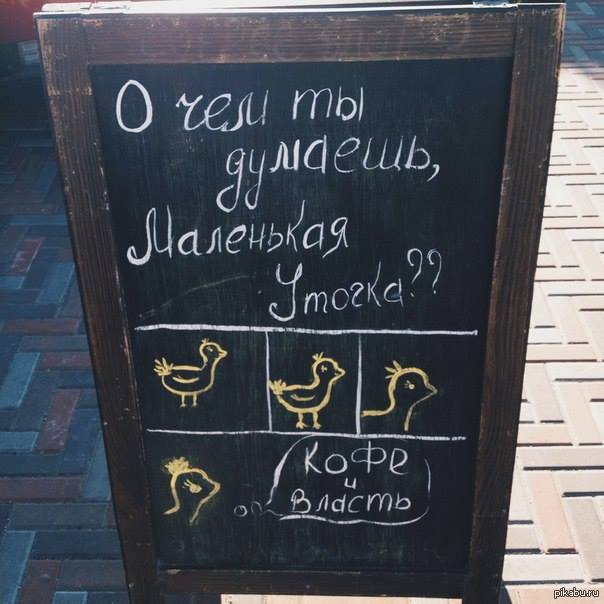 О чем ты
думаешь,
Маленькая
Уточка??
Кофе
и
Власть
pikabu.ru